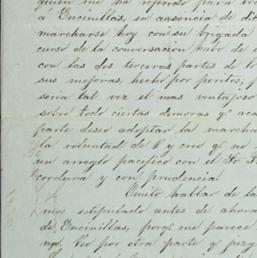 quiso me ha referido para
á Encinillas, en ausencia de
marcharse hoy con su brigada
curso de la conversacion hubo de
con las dos terceras partes de
sus mejoras, hecho por peritos;
seria tal vez el mas ventajoso
sobre todo ciertas demoras q
parte deseo adoptar la marcha
la voluntad de V y creo q no
un arreglo pacifico con el Sr.
cordura y con prudencia.
Omito hablar de las
mos estipulado antes de ahora
de Encinillas, porq me parece
Por otra parte y juzg